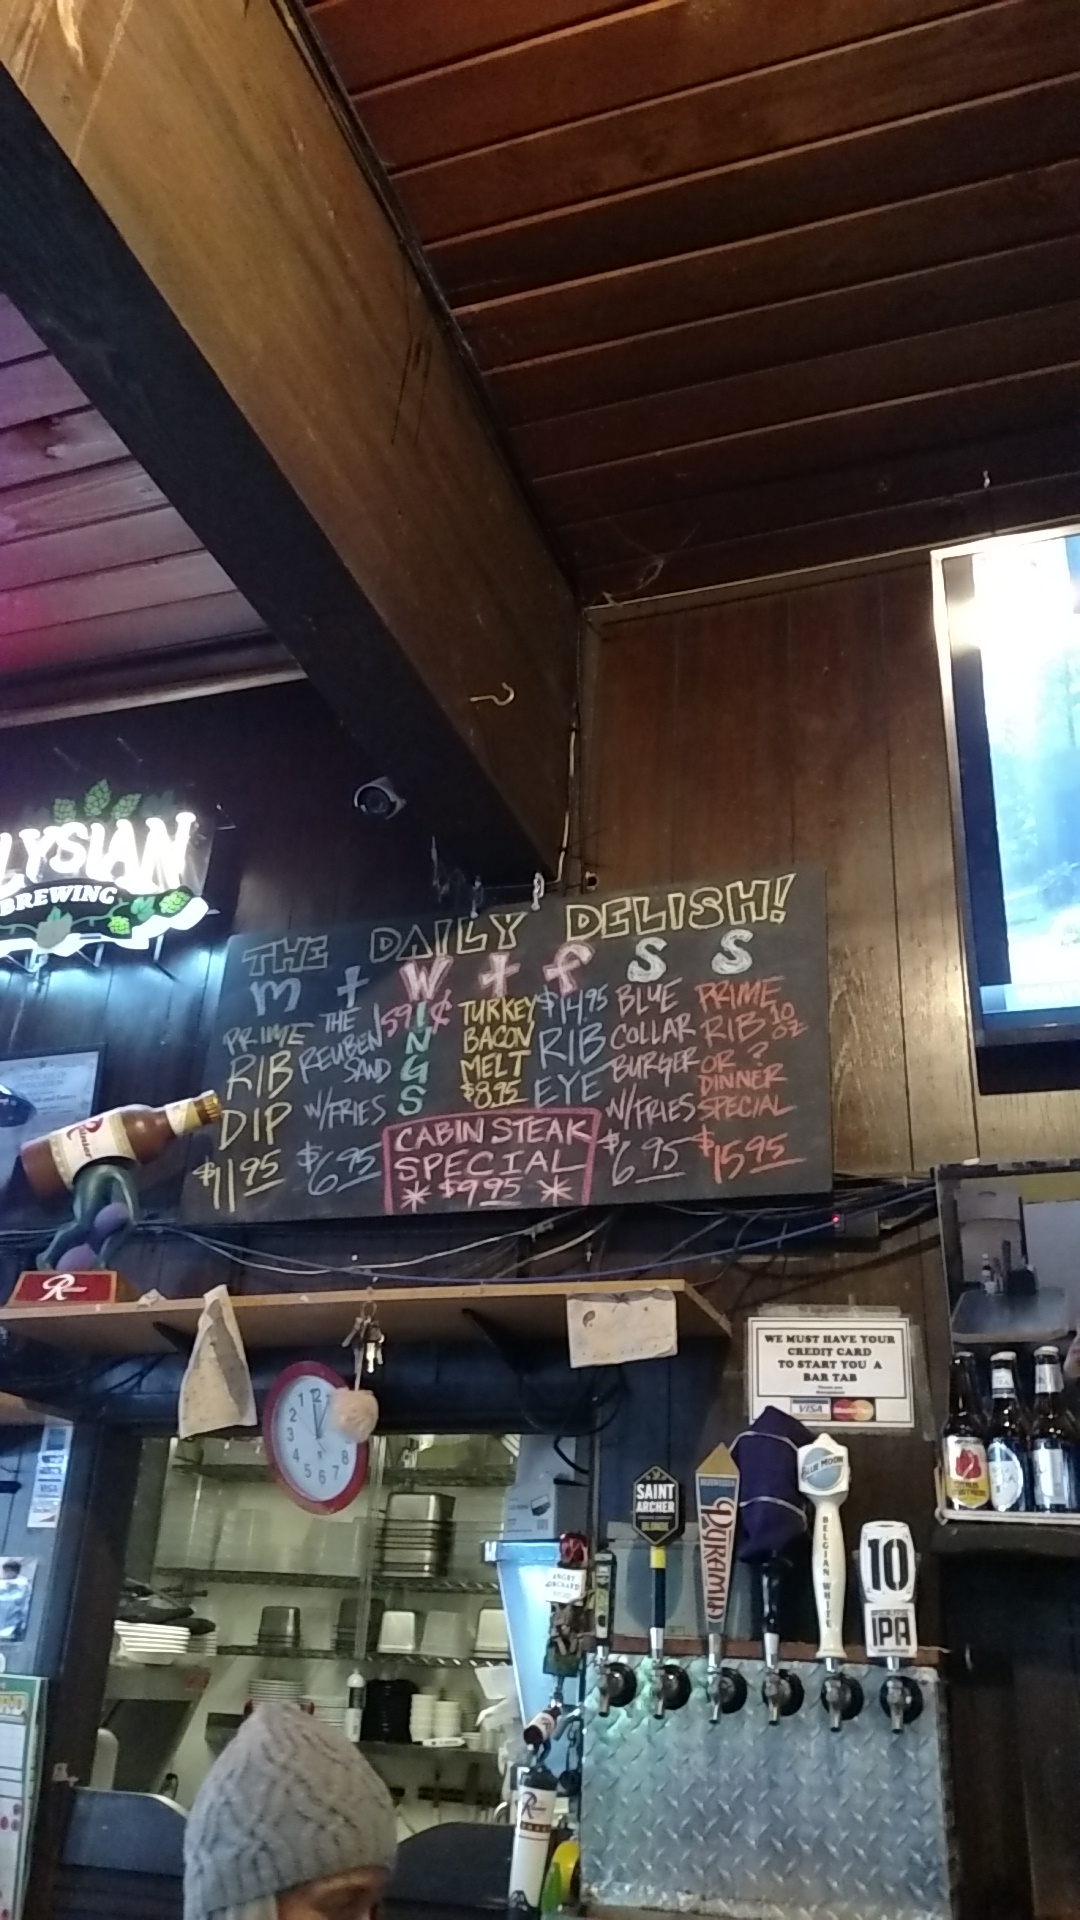 LYSIAN
BREWING
THE DAILY DELISH!
M T W T F S S
PRIME
RIB
DIP
$11.95
THE
REUBEN
SAND
W/FRIES
$6.95
59¢
WINGS
TURKEY
BACON
MELT
$8.95
$14.95
RIB
EYE
BLUE
COLLAR
BURGER
W/FRIES
$6.95
PRIME
RIB 10 OZ
OR ?
DINNER
SPECIAL
$15.95
CABIN STEAK
SPECIAL
* $9.95 *
Rainier
R
WE MUST HAVE YOUR
CREDIT CARD
TO START YOU A
BAR TAB
VISA
MasterCard
12
1
2
3
4
5
6
7
8
VISA
SAINT
ARCHER
BLONDE
PYRAMID
BLUE MOON
BELGIAN WHITE
10
IPA
ANGRY
ORCHARD
R